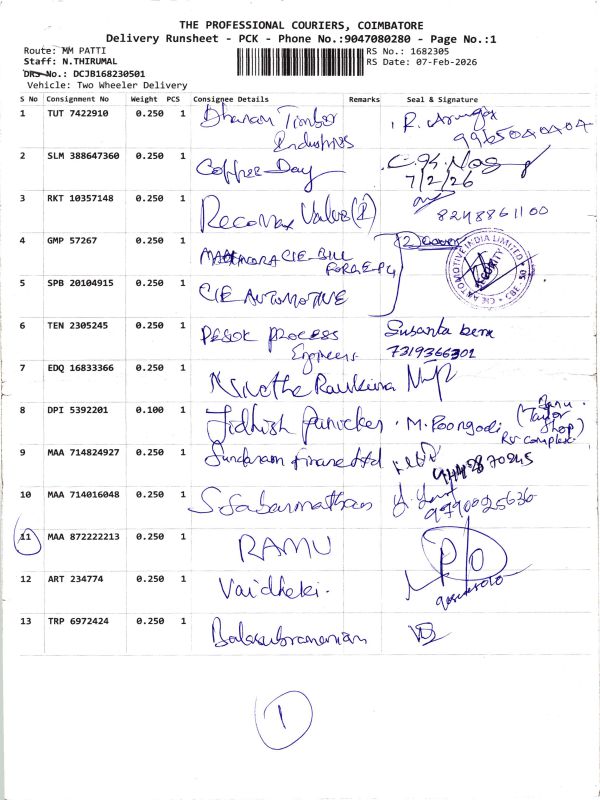 THE PROFESSIONAL COURIERS, COIMBATORE
Delivery Runsheet - PCK - Phone No.:9047080280 - Page No.:1
Route: MM PATTI
Staff: N.THIRUMAL
DRS No.: DCJB168230501
Vehicle: Two Wheeler Delivery
RS No.: 1682305
RS Date: 07-Feb-2026
S No Consignment No Weight PCS Consignee Details Remarks Seal & Signature
1 TUT 7422910 0.250 1 Dharan Timber R.
Industries 9965040404
2 SLM 388647360 0.250 1 Coffee Day
7/2/26
3 RKT 10357148 0.250 1 Recomax Valve 8248861100
4 GMP 57267 0.250 1 MAHINDRA CIE BILL (2) Cover
FORGE P4
CIE AUTOMOTIVE INDIA LIMITED
SECURITY
5 SPB 20104915 0.250 1 CIE AUTOMOTIVE
6 TEN 2305245 0.250 1 PROCESS Susanta bera
Engineers 7319366301
7 EDQ 16833366 0.250 1
8 DPI 5392201 0.100 1 Jidhish Panicker . M. Poongodi (Taylor
Shop)
Rs complex
9 MAA 714824927 0.250 1 Sundaram Finance Ltd
10 MAA 714016048 0.250 1 9790025636
11 MAA 872222213 0.250 1 RAMU
12 ART 234774 0.250 1 Vaidheki.
13 TRP 6972424 0.250 1 Balasubramanian
1